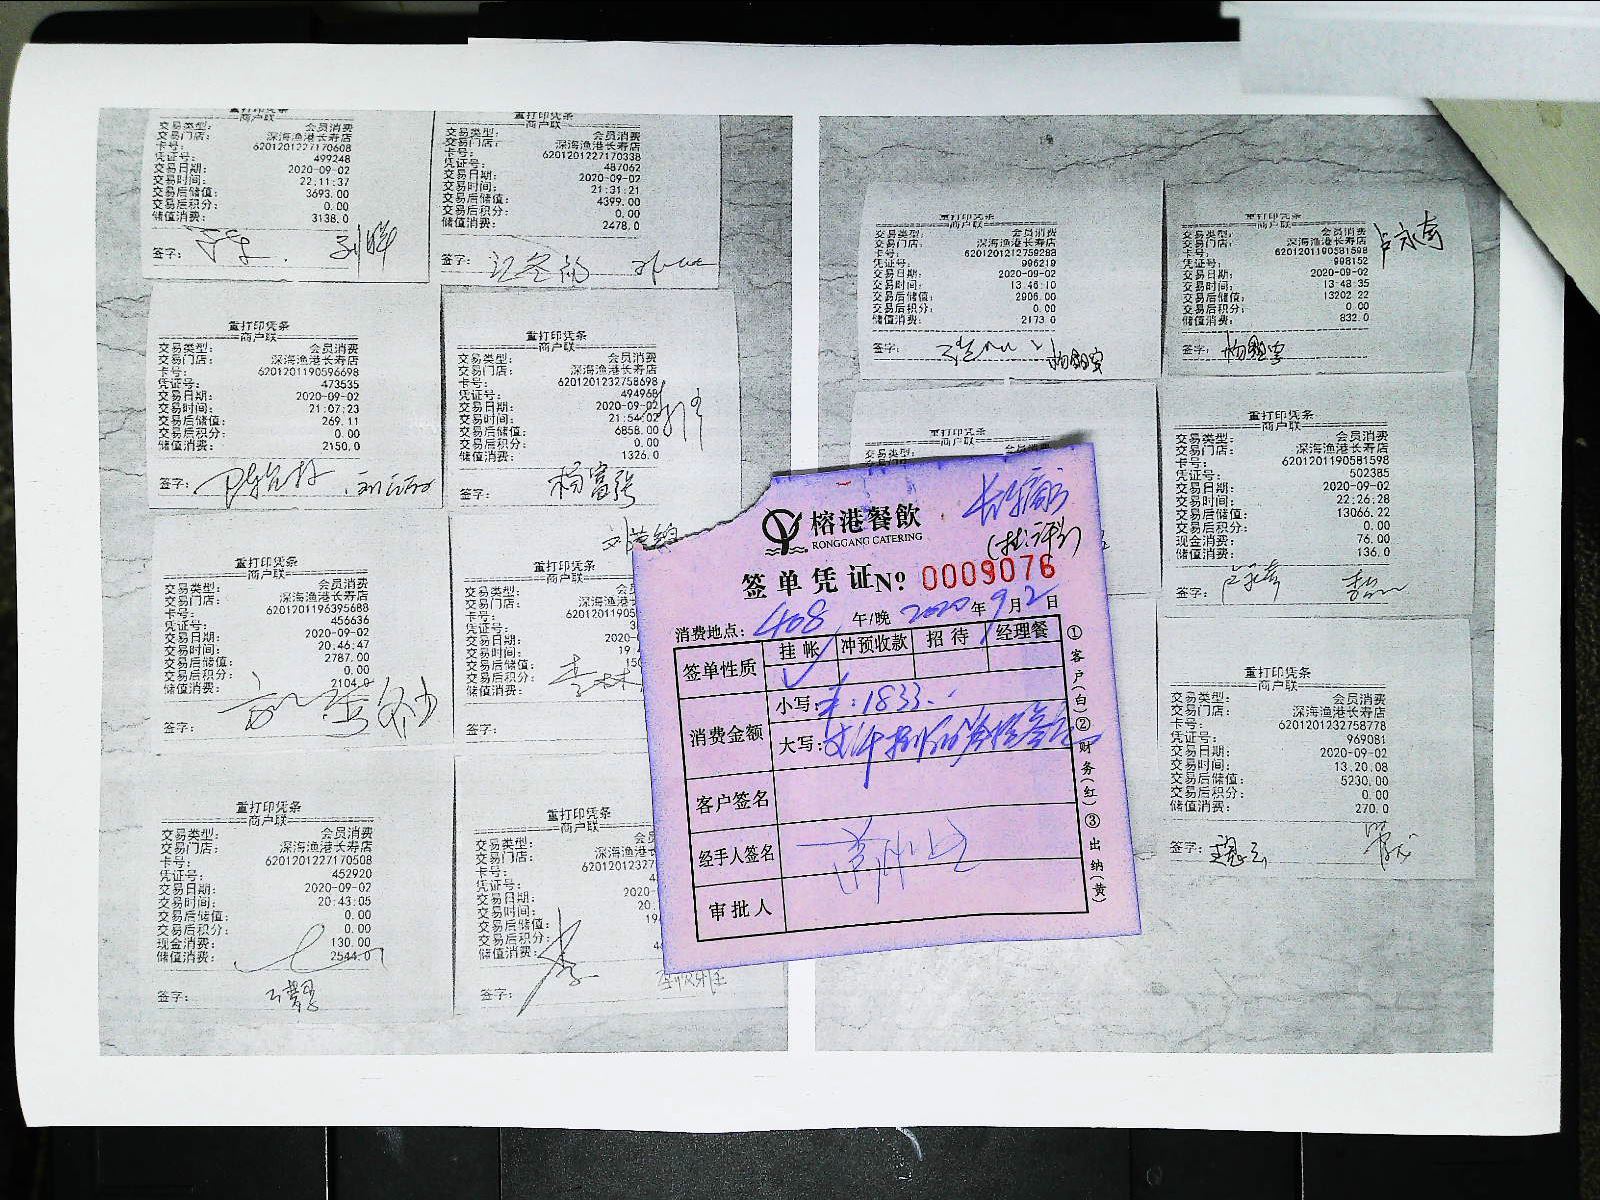 重打印凭条
商户联
交易类型： 会员消费
交易门店： 深海渔港长寿店
卡号： 6201201227170608
凭证号： 499248
交易日期： 2020-09-02
交易时间： 22:11:37
交易后储值： 3693.00
交易后积分： 0.00
储值消费： 3138.0
签字：
重打印凭条
商户联
交易类型： 会员消费
交易门店： 深海渔港长寿店
卡号： 6201201227170338
凭证号： 487062
交易日期： 2020-09-02
交易时间： 21:31:21
交易后储值： 4399.00
交易后积分： 0.00
储值消费： 2478.0
签字：
重打印凭条
商户联
交易类型： 会员消费
交易门店： 深海渔港长寿店
卡号： 6201201190596698
凭证号： 473535
交易日期： 2020-09-02
交易时间： 21:07:23
交易后储值： 269.11
交易后积分： 0.00
储值消费： 2150.0
签字：
重打印凭条
商户联
交易类型： 会员消费
交易门店： 深海渔港长寿店
卡号： 6201201232758698
凭证号： 494968
交易日期： 2020-09-02
交易时间： 21:54:02
交易后储值： 6858.00
交易后积分： 0.00
储值消费： 1326.0
签字： 杨富强
重打印凭条
商户联
交易类型： 会员消费
交易门店： 深海渔港长寿店
卡号： 6201201196395688
凭证号： 456636
交易日期： 2020-09-02
交易时间： 20:46:47
交易后储值： 2787.00
交易后积分： 0.00
储值消费： 2104.0
签字：
重打印凭条
商户联
交易类型： 会员消费
交易门店： 深海渔港长
卡号： 62012011905
凭证号：
交易日期： 2020-
交易时间： 19:4
交易后储值： 150
交易后积分：
储值消费：
签字：
重打印凭条
商户联
交易类型： 会员消费
交易门店： 深海渔港长寿店
卡号： 6201201227170508
凭证号： 452920
交易日期： 2020-09-02
交易时间： 20:43:05
交易后储值： 0.00
交易后积分： 0.00
现金消费： 130.00
储值消费： 2544.0
签字：
重打印凭条
商户联
交易类型： 会员消费
交易门店： 深海渔港长
卡号： 62012012327
凭证号： 4
交易日期： 2020-
交易时间： 20:
交易后储值： 19
交易后积分：
储值消费：
签字： 李
重打印凭条
商户联
交易类型： 会员消费
交易门店： 深海渔港长寿店
卡号： 6201201212759288
凭证号： 996219
交易日期： 2020-09-02
交易时间： 13:46:10
交易后储值： 2906.00
交易后积分： 0.00
储值消费： 2173.0
签字：
重打印凭条
商户联
交易类型： 会员消费
交易门店： 深海渔港长寿店
卡号： 6201201190581598
凭证号： 998152
交易日期： 2020-09-02
交易时间： 13:48:35
交易后储值： 13202.22
交易后积分： 0.00
储值消费： 832.0
签字：
重打印凭条
商户联
交易类型： 会员消费
重打印凭条
商户联
交易类型： 会员消费
交易门店： 深海渔港长寿店
卡号： 6201201190581598
凭证号： 502385
交易日期： 2020-09-02
交易时间： 22:26:28
交易后储值： 13066.22
交易后积分： 0.00
现金消费： 76.00
储值消费： 136.0
签字：
重打印凭条
商户联
交易类型： 会员消费
交易门店： 深海渔港长寿店
卡号： 6201201232758778
凭证号： 969081
交易日期： 2020-09-02
交易时间： 13:20:08
交易后储值： 5230.00
交易后积分： 0.00
储值消费： 270.0
签字：
榕港餐飲
RONGGANG CATERING
签单凭证 No 0009076
消费地点： 408 午/晚 2020年9月2日
签单性质 挂帐 冲预收款 招待 经理餐
✓
消费金额 小写：¥：1833.
大写：
客户签名
经手人签名
审批人
①客户(白)②财务(红)③出纳(黄)